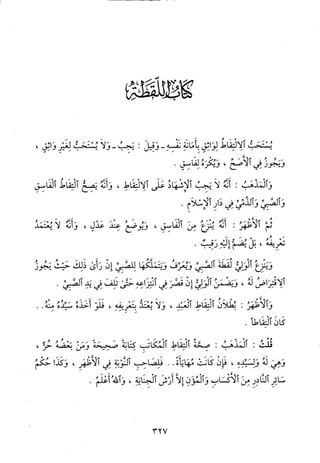 كِتَابُ اللُّقَطَةِ
يُسْتَحَبُّ الِالْتِقَاطُ لِوَاثِقٍ بِأَمَانَةِ نَفْسِهِ - وَقِيلَ : يَجِبُ - وَلَا يُسْتَحَبُّ لِغَيْرِ وَاثِقٍ ،
وَيَجُوزُ فِي الْأَصَحِّ ، وَيُكْرَهُ لِفَاسِقٍ .
وَالْمَذْهَبُ : أَنَّهُ لَا يَجِبُ الْإِشْهَادُ عَلَى الِالْتِقَاطِ ، وَأَنَّهُ يَصِحُّ الْتِقَاطُ الْفَاسِقِ
وَالصَّبِيِّ وَالذِّمِّيِّ فِي دَارِ الْإِسْلَامِ .
ثُمَّ الْأَظْهَرُ : أَنَّهُ يُنْزَعُ مِنَ الْفَاسِقِ ، وَيُوضَعُ عِنْدَ عَدْلٍ ، وَأَنَّهُ لَا يُعْتَمَدُ
تَعْرِيفُهُ ، بَلْ يُضَمُّ إِلَيْهِ رَقِيبٌ .
وَيَنْزِعُ الْوَلِيُّ لُقَطَةَ الصَّبِيِّ وَيُعَرِّفُ وَيَتَمَلَّكُهَا لِلصَّبِيِّ إِنْ رَأَى ذَلِكَ حَيْثُ يَجُوزُ
الِاقْتِرَاضُ لَهُ ، وَيَضْمَنُ الْوَلِيُّ إِنْ قَصَّرَ فِي انْتِزَاعِهِ حَتَّى تَلِفَ فِي يَدِ الصَّبِيِّ .
وَالْأَظْهَرُ : بُطْلَانُ الْتِقَاطِ الْعَبْدِ ، وَلَا يُعْتَدُّ بِتَعْرِيفِهِ ، فَلَوْ أَخَذَهُ سَيِّدُهُ مِنْهُ . .
كَانَ الْتِقَاطاً .
قُلْتُ : الْمَذْهَبُ : صِحَّةُ الْتِقَاطِ الْمُكَاتَبِ كِتَابَةً صَحِيحَةً وَمَنْ بَعْضُهُ حُرٌّ ،
وَهِيَ لَهُ وَلِسَيِّدِهِ ، فَإِنْ كَانَتْ مُهَايَأَةٌ . . فَلِصَاحِبِ النَّوْبَةِ فِي الْأَظْهَرِ ، وَكَذَا حُكْمُ
سَائِرِ النَّادِرِ مِنَ الْأَكْسَابِ وَالْمُؤَنِ إِلَّا أَرْشَ الْجِنَايَةِ ، وَاللهُ أَعْلَمُ .
٣٢٧